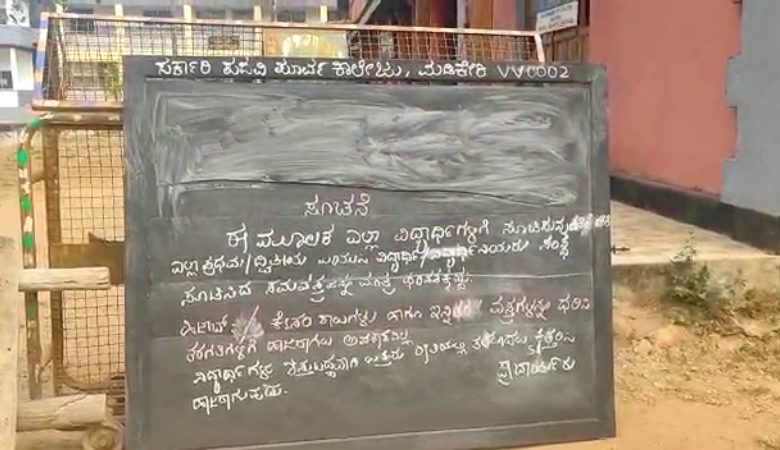 ಸರ್ಕಾರಿ ಪದವಿ ಪೂರ್ವ ಕಾಲೇಜು, ಮಡಿಕೇರಿ VV0002
ಸೂಚನೆ
ಈ ಮೂಲಕ ಎಲ್ಲಾ ವಿದ್ಯಾರ್ಥಿಗಳಿಗೆ ಸೂಚಿಸುವುದೇನೆಂದರೆ
ಎಲ್ಲಾ ಪ್ರಥಮ/ದ್ವಿತೀಯ ಪಿಯುಸಿ ವಿದ್ಯಾರ್ಥಿ/ವಿದ್ಯಾರ್ಥಿನಿಯರು ಸಂಸ್ಥೆ
ಸೂಚಿಸಿದ ಸಮವಸ್ತ್ರವನ್ನು ಮಾತ್ರ ಧರಿಸತಕ್ಕದ್ದು.
ಹಿಜಾಬ್ ಕೇಸರಿ ಶಾಲುಗಳು ಹಾಗೂ ಇನ್ನಿತರ ವಸ್ತ್ರಗಳನ್ನು ಧರಿಸಿ
ತರಗತಿಗಳಿಗೆ ಹಾಜರಾಗಲು ಅವಕಾಶವಿಲ್ಲ
ವಿದ್ಯಾರ್ಥಿಗಳು ಶಿಸ್ತುಬದ್ಧವಾಗಿ ಉತ್ತಮ ರೀತಿಯಲ್ಲಿ
ಹಾಜರಾಗುವುದು.
ಪ್ರಾಚಾರ್ಯರು